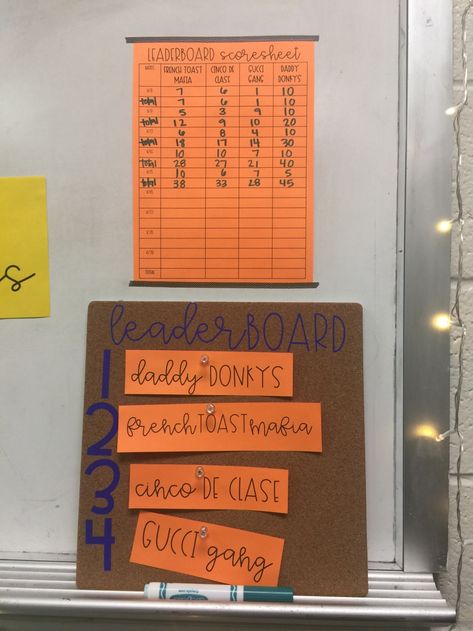 LEADERBOARD scoresheet
DATES FRENCH TOAST MAFIA CINCO DE CLASE GUCCI GANG DADDY DONKYS
7 6 1 10
total 7 6 1 10
5 3 9 10
total 12 9 10 20
6 8 4 10
total 18 17 14 30
10 10 7 10
total 28 27 21 40
10 6 7 5
total 38 33 28 45
TOTAL
s
leaderBOARD
1 daddy DONKYS
2 frenchTOASTmafia
3 cinco DE CLASE
4 GUCCI gang